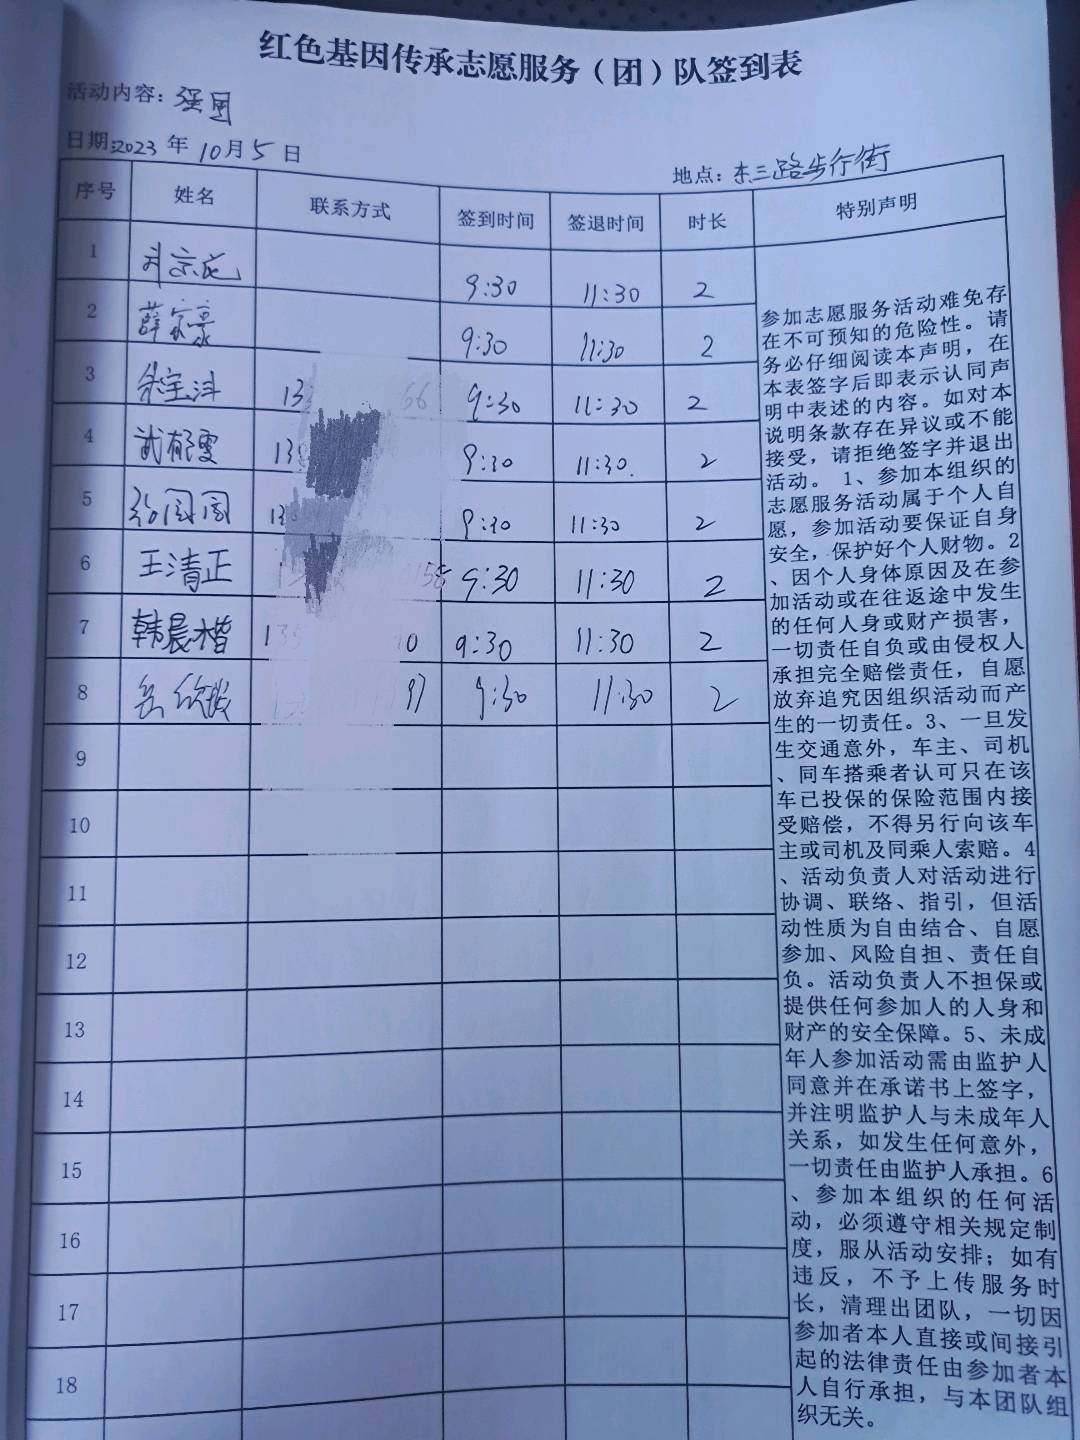 红色基因传承志愿服务（团）队签到表
活动内容：强国
日期:2023 年 10月5 日
地点：东三路步行街
序号 姓名 联系方式 签到时间 签退时间 时长 特别声明
1 9:30 11:30 2
2 薛家豪 9:30 11:30 2
3 9:30 11:30 2
4 武郁雯 9:30 11:30. 2
5 9:30 11:30 2
6 王清正 9:30 11:30 2
7 韩晨楷 9:30 11:30 2
8 9:30 11:30 2
9
10
11
12
13
14
15
16
17
18
参加志愿服务活动难免存
在不可预知的危险性。请
务必仔细阅读本声明，在
本表签字后即表示认同声
明中表述的内容。如对本
说明条款存在异议或不能
接受，请拒绝签字并退出
活动。 1、参加本组织的
志愿服务活动属于个人自
愿，参加活动要保证自身
安全，保护好个人财物。2
、因个人身体原因及在参
加活动或在往返途中发生
的任何人身或财产损害，
一切责任自负或由侵权人
承担完全赔偿责任，自愿
放弃追究因组织活动而产
生的一切责任。3、一旦发
生交通意外，车主、司机
、同车搭乘者认可只在该
车已投保的保险范围内接
受赔偿，不得另行向该车
主或司机及同乘人索赔。4
、活动负责人对活动进行
协调、联络、指引，但活
动性质为自由结合、自愿
参加、风险自担、责任自
负。活动负责人不担保或
提供任何参加人的人身和
财产的安全保障。5、未成
年人参加活动需由监护人
同意并在承诺书上签字，
并注明监护人与未成年人
关系，如发生任何意外，
一切责任由监护人承担。6
、参加本组织的任何活
动，必须遵守相关规定制
度，服从活动安排；如有
违反，不予上传服务时
长，清理出团队，一切因
参加者本人直接或间接引
起的法律责任由参加者本
人自行承担，与本团队组
织无关。